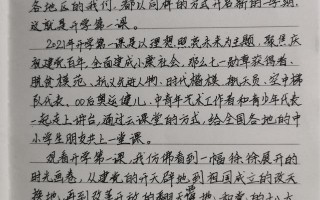 各地区的我们，都以同样的方式开启新的一学期，
这就是开学第一课。
2021年开学第一课是以理想照亮未来为主题，聚焦庆
祝建党百年，全面建成小康社会，那么七一勋章获得者、
脱贫模范、抗义先进人物、时代楷模、航天员、空中梯
队代表、00后奥运健儿、中青年艺术工作者和青少年代表
一起走上讲台，通过云课堂的方式，给全国各地的中
小学生朋友共上一堂课。
观看开学第一课，我仿佛看到一幅徐徐展开的
时光画卷，从建党的开天辟地，到祖国成立的改天
换地，再到改革开放的翻天覆地，和党的十八大